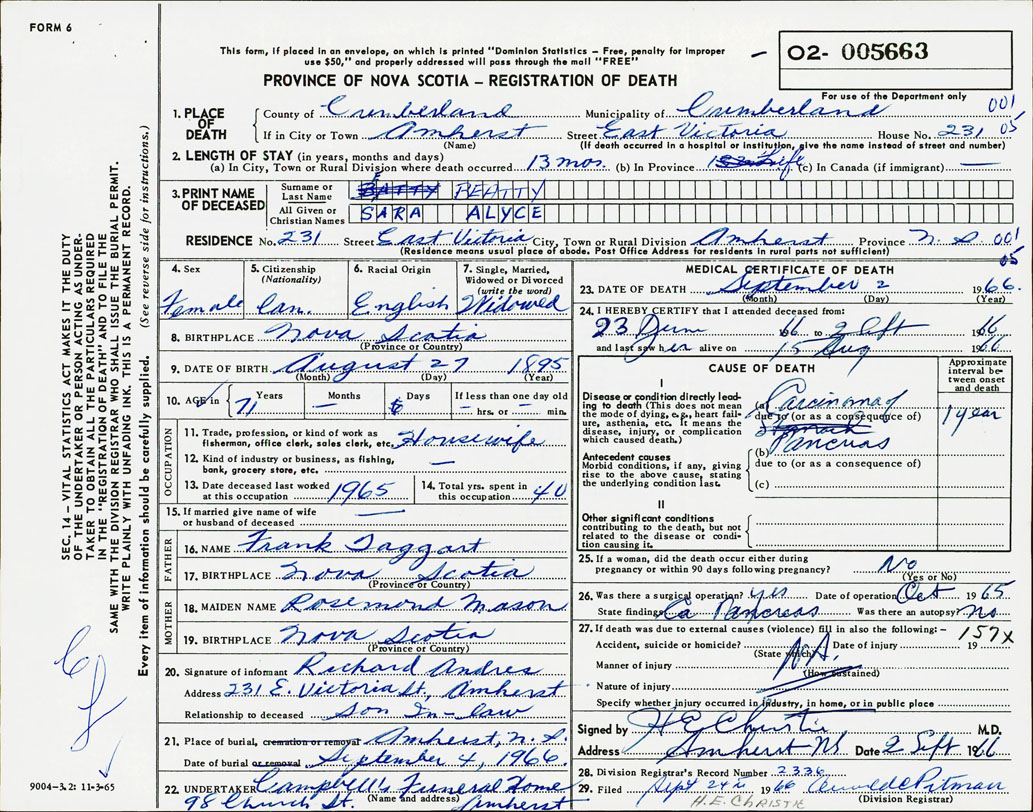 FORM 6
This form, if placed in an envelope, on which is printed "Dominion Statistics – Free, penalty for improper
use $50," and properly addressed will pass through the mail "FREE"
PROVINCE OF NOVA SCOTIA – REGISTRATION OF DEATH
– 02- 005663
For use of the Department only
1. PLACE OF DEATH
County of Cumberland Municipality of Cumberland 001
If in City or Town Amherst Street East Victoria House No. 231 05
(Name) (If death occurred in a hospital or institution, give the name instead of street and number)
2. LENGTH OF STAY (in years, months and days)
(a) In City, Town or Rural Division where death occurred 13 mos. (b) In Province Life (c) In Canada (if immigrant) —
3. PRINT NAME OF DECEASED
Surname or Last Name BATTY BEATTY
All Given or Christian Names SARA ALYCE
RESIDENCE No. 231 Street East Victoria City, Town or Rural Division Amherst Province N.S 001
(Residence means usual place of abode. Post Office Address for residents in rural parts not sufficient) 05
4. Sex Female
5. Citizenship (Nationality) Can.
6. Racial Origin English
7. Single, Married, Widowed or Divorced (write the word) Widowed
8. BIRTHPLACE Nova Scotia
(Province or Country)
9. DATE OF BIRTH August 27 1895
(Month) (Day) (Year)
10. AGE in 71 Years — Months 6 Days If less than one day old — hrs. or — min.
OCCUPATION
11. Trade, profession, or kind of work as
fisherman, office clerk, sales clerk, etc. Housewife
12. Kind of industry or business, as fishing,
bank, grocery store, etc. —
13. Date deceased last worked
at this occupation 1965
14. Total yrs. spent in
this occupation 40
15. If married give name of wife
or husband of deceased —
FATHER
16. NAME Frank Taggart
17. BIRTHPLACE Nova Scotia
(Province or Country)
MOTHER
18. MAIDEN NAME Rosemond Mason
19. BIRTHPLACE Nova Scotia
(Province or Country)
20. Signature of informant Richard Andres
Address 231 E. Victoria St, Amherst
Relationship to deceased Son In-law
21. Place of burial, cremation or removal Amherst, N.S.
Date of burial or removal September 4, 1966
22. UNDERTAKER Campbell's Funeral Home
(Name and address)
98 Church St. Amherst
MEDICAL CERTIFICATE OF DEATH
23. DATE OF DEATH September 2 1966.
(Month) (Day) (Year)
24. I HEREBY CERTIFY that I attended deceased from:
23 66 to 2 1966
and last saw her alive on 15 Aug 1966
CAUSE OF DEATH
Approximate interval between onset and death
I
Disease or condition directly leading to death (This does not mean
the mode of dying, e.g., heart failure, asthenia, etc. It means the
disease, injury, or complication
which caused death.)
(a) Carcinoma of 1 year
due to (or as a consequence of)
Stomach
Pancreas
Antecedent causes
Morbid conditions, if any, giving
rise to the above cause, stating
the underlying condition last.
(b)
due to (or as a consequence of)
(c)
II
Other significant conditions
contributing to the death, but not
related to the disease or condition causing it.
25. If a woman, did the death occur either during
pregnancy or within 90 days following pregnancy? No
(Yes or No)
26. Was there a surgical operation? yes Date of operation Oct 1965
State findings Ca Pancreas Was there an autopsy? no
27. If death was due to external causes (violence) fill in also the following:– 157X
Accident, suicide or homicide? Date of injury 19
(State which) N.A.
Manner of injury
(How sustained)
Nature of injury
Specify whether injury occurred in industry, in home, or in public place
Signed by H E Christie M.D.
Address Amherst NS Date 2 Sept 1966
28. Division Registrar's Record Number 2336
29. Filed Sept 1966 Pitman
(Division Registrar)
H.E. CHRISTIE
SEC. 14 – VITAL STATISTICS ACT MAKES IT THE DUTY
OF THE UNDERTAKER OR PERSON ACTING AS UNDERTAKER TO OBTAIN ALL THE PARTICULARS REQUIRED
IN THE "REGISTRATION OF DEATH" AND TO FILE THE
SAME WITH THE DIVISION REGISTRAR WHO SHALL ISSUE THE BURIAL PERMIT.
WRITE PLAINLY WITH UNFADING INK. THIS IS A PERMANENT RECORD.
Every item of information should be carefully supplied. (See reverse side for instructions.)
9004-3.2: 11-3-65